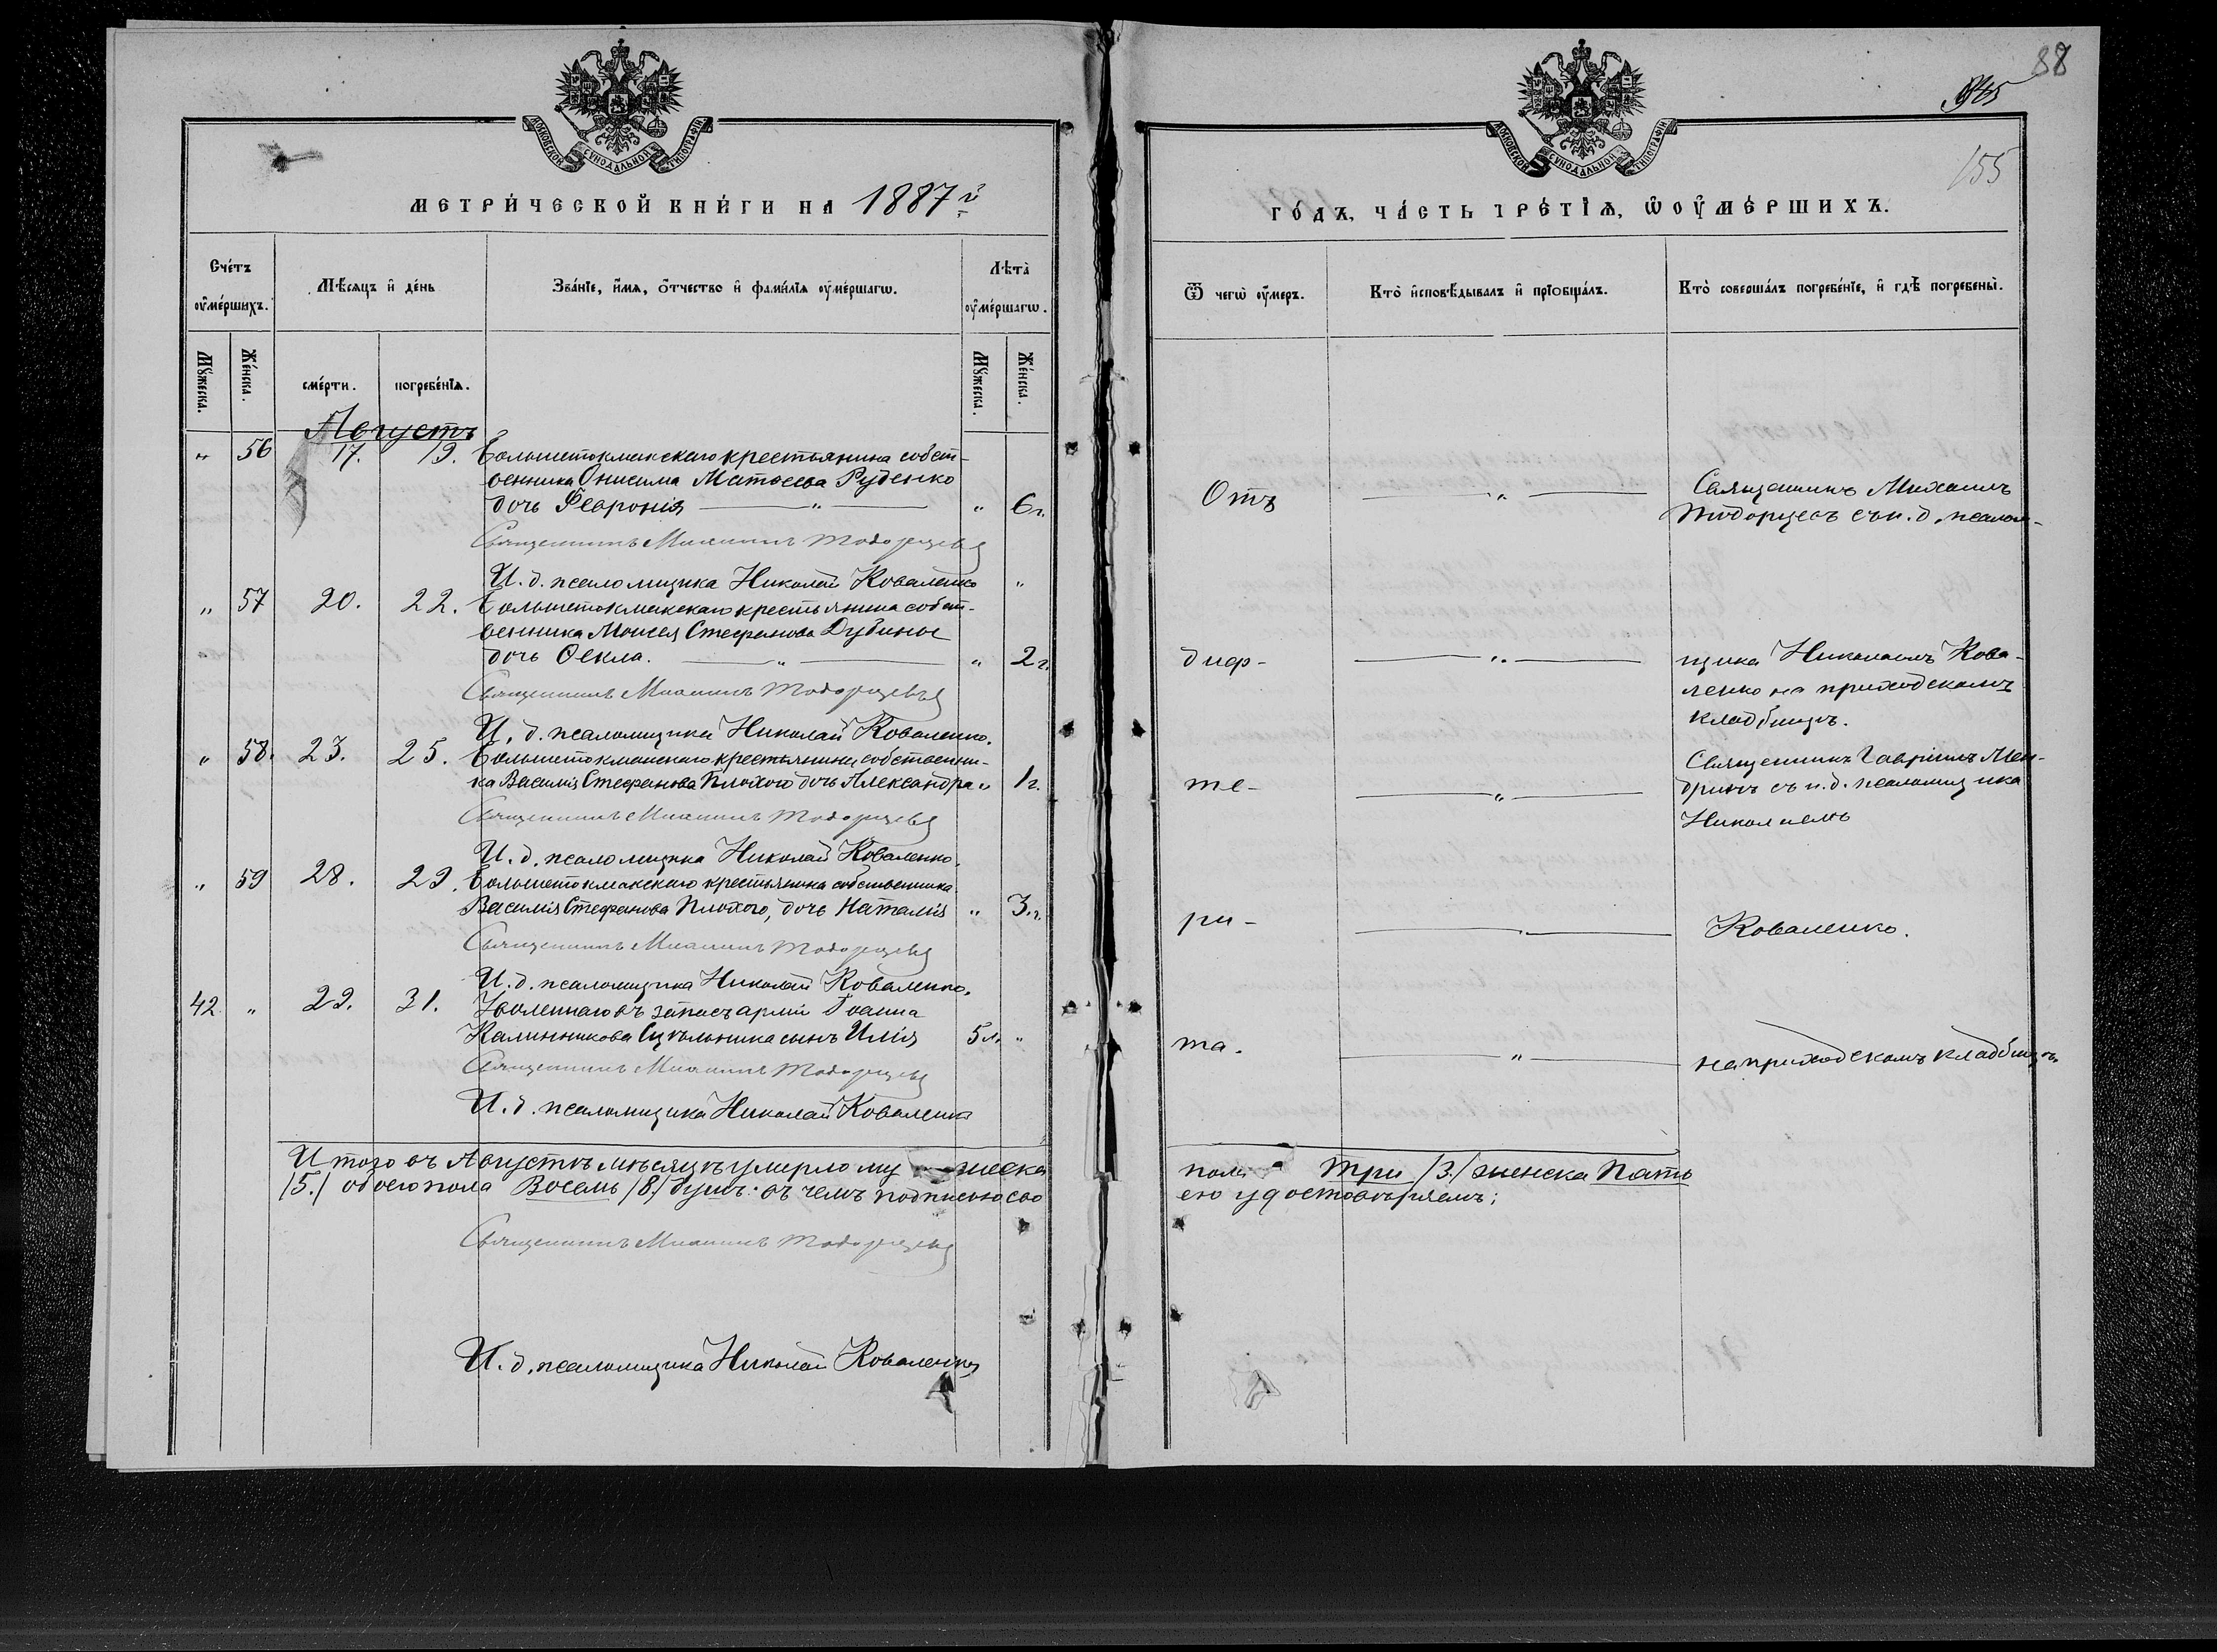 МОСКОВСКОЙ СУНОДАЛЬНОЙ ТИПОГРАФІИ
МЕТРИ́ЧЕСКОЙ КНИ́ГИ НА 1887 й
Сче́тъ оу҆ме́ршихъ.
Мѣ́сяцъ и҆ де́нь
Зва́нїе, и҆́мѧ, ѻ҆́тчество и҆ фами́лїѧ оу҆ме́ршагѡ.
Лѣта̀ оу҆ме́ршагѡ.
Мꙋ́жеска.
Же́нска.
сме́рти.
погребе́нїѧ.
Мꙋ́жеска.
Же́нска.
Августъ
" 56 17. 19. Большетокмакскаго крестьянина собст-
венника Онисима Матѳеева Руденко
дочь Феврониѧ " " 6 г.
Священникъ Михаилъ Тодорцевъ
И. д. псаломщика Николай Коваленко "
" 57 20. 22. Большетокмакскаго крестьянина собст-
венника Моисея Стефанова Дубины
дочь Ѳекла. " " 2 г.
Священникъ Михаилъ Тодорцевъ
И. д. псаломщика Николай Коваленко.
" 58. 23. 25. Большетокмакскаго крестьянина собственни-
ка Василія Стефанова Плохого дочь Александра " 1 г.
Священникъ Михаилъ Тодорцевъ
И. д. псаломщика Николай Коваленко.
" 59 28. 29. Большетокмакскаго крестьянина собственника
Василія Стефанова Плохого, дочь Наталія " 3. г.
Священникъ Михаилъ Тодорцевъ
И. д. псаломщика Николай Коваленко.
42 " 29. 31. Уволеннаго въ запасъ арміи Іоанна
Калинникова Сукольника сынъ Илія 5 л. "
Священникъ Михаилъ Тодорцевъ
И. д. псаломщика Николай Коваленко
Итого въ Августѣ мѣсяцѣ умерло мужеска
/5./ обоего пола Восемь /8/ душъ: въ чемъ подписью сво
Священникъ Михаилъ Тодорцевъ
И. д. псаломщика Николай Коваленко
88
155
МОСКОВСКОЙ СУНОДАЛЬНОЙ ТИПОГРАФІИ
ГО́ДЪ, ЧА́СТЬ ТРЕ́ТЇѦ, Ѡ҆ ОУ҆МЕ́РШИХЪ.
Ѿ чегѡ̀ оу҆́меръ.
Кто̀ и҆сповѣ́дывалъ и҆ прїѡбща́лъ.
Кто̀ соверша́лъ погребе́нїе, и҆ гдѣ̀ погребены̀.
Отъ " Священникъ Михаилъ
Тодорцевъ съ и. д. псалом-
диф- " щика Николаемъ Кова-
ленко на приходскомъ
кладбищѣ.
те- " Священникъ Гавріилъ Мен-
дринъ съ и. д. псаломщика
Николаемъ
ри- " Коваленко.
та. " на приходскомъ кладбищѣ
пола Три /3./ женска Пять
ею удостовѣряемъ;